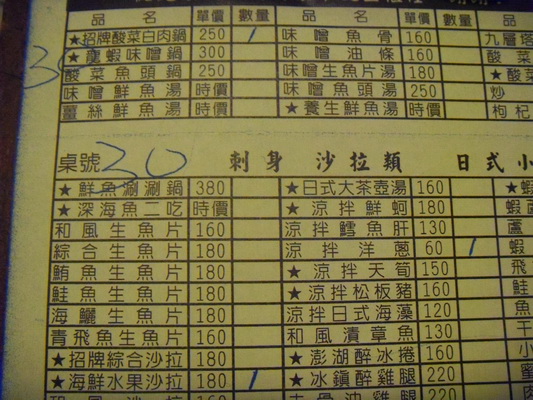 品名 單價 數量 品名 單價 數量 品
★招牌酸菜白肉鍋 250 / 味噌魚骨 160 九層塔
味噌鍋 300 味噌油條 160 酸菜
酸菜魚頭鍋 250 味噌生魚片湯 180 ★酸菜
味噌鮮魚湯 時價 味噌魚頭湯 250 炒
薑絲鮮魚湯 時價 ★養生鮮魚湯 時價 枸杞
桌號 30 刺身 沙拉類 日式小
★鮮魚涮涮鍋 380 ★日式大茶壺湯 160 ★蝦
★深海魚二吃 時價 ★涼拌鮮蚵 180 蝦蘆
和風生魚片 160 涼拌鱈魚肝 130 蘆
綜合生魚片 180 涼拌洋蔥 60 / 蝦
鮪魚生魚片 180 ★涼拌天筍 150 飛
鮭魚生魚片 180 ★涼拌松板豬 160 鮭
海鱺生魚片 180 涼拌日式海藻 120 魚
青飛魚生魚片 160 和風漬章魚 130 干
★招牌綜合沙拉 180 ★澎湖醉冰捲 160 小
★海鮮水果沙拉 180 / ★冰鎮醉雞腿 220 蜜
160 220 肉